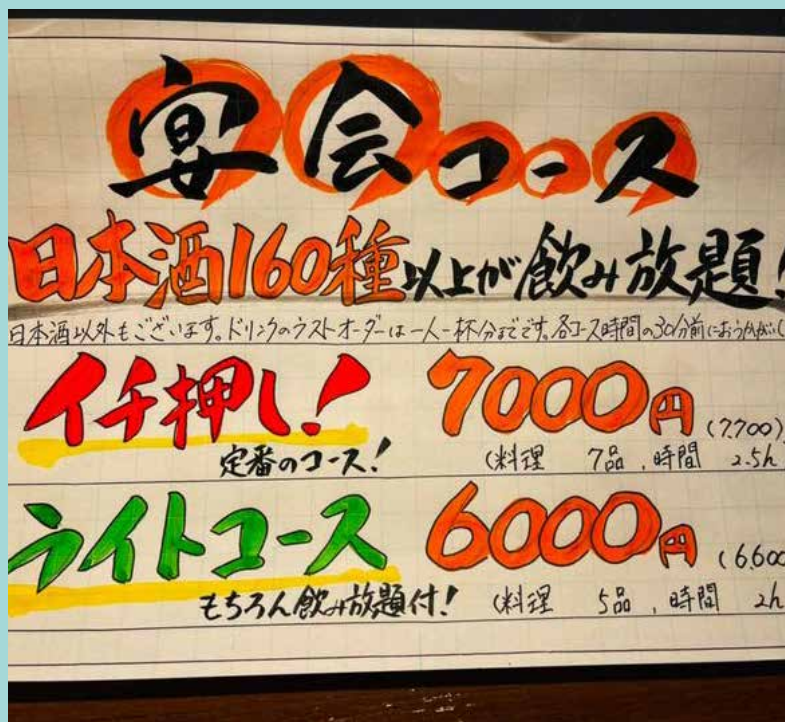 宴会コース
日本酒160種以上が飲み放題!
日本酒以外もございます。ドリンクのラストオーダーは一人一杯分までです。各コース時間の30分前におうかがい
イチ押し! 7000円 (7,700)
定番のコース! (料理 7品, 時間 2.5h
ライトコース 6000円 (6,600
もちろん飲み放題付! (料理 5品, 時間 2h